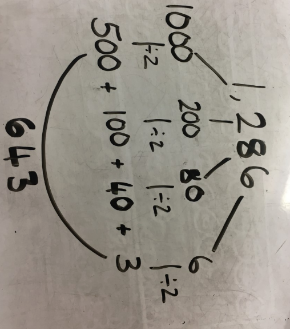 1,286
1000 200 80 6
÷2 ÷2 ÷2 ÷2
500 + 100 + 40 + 3
643